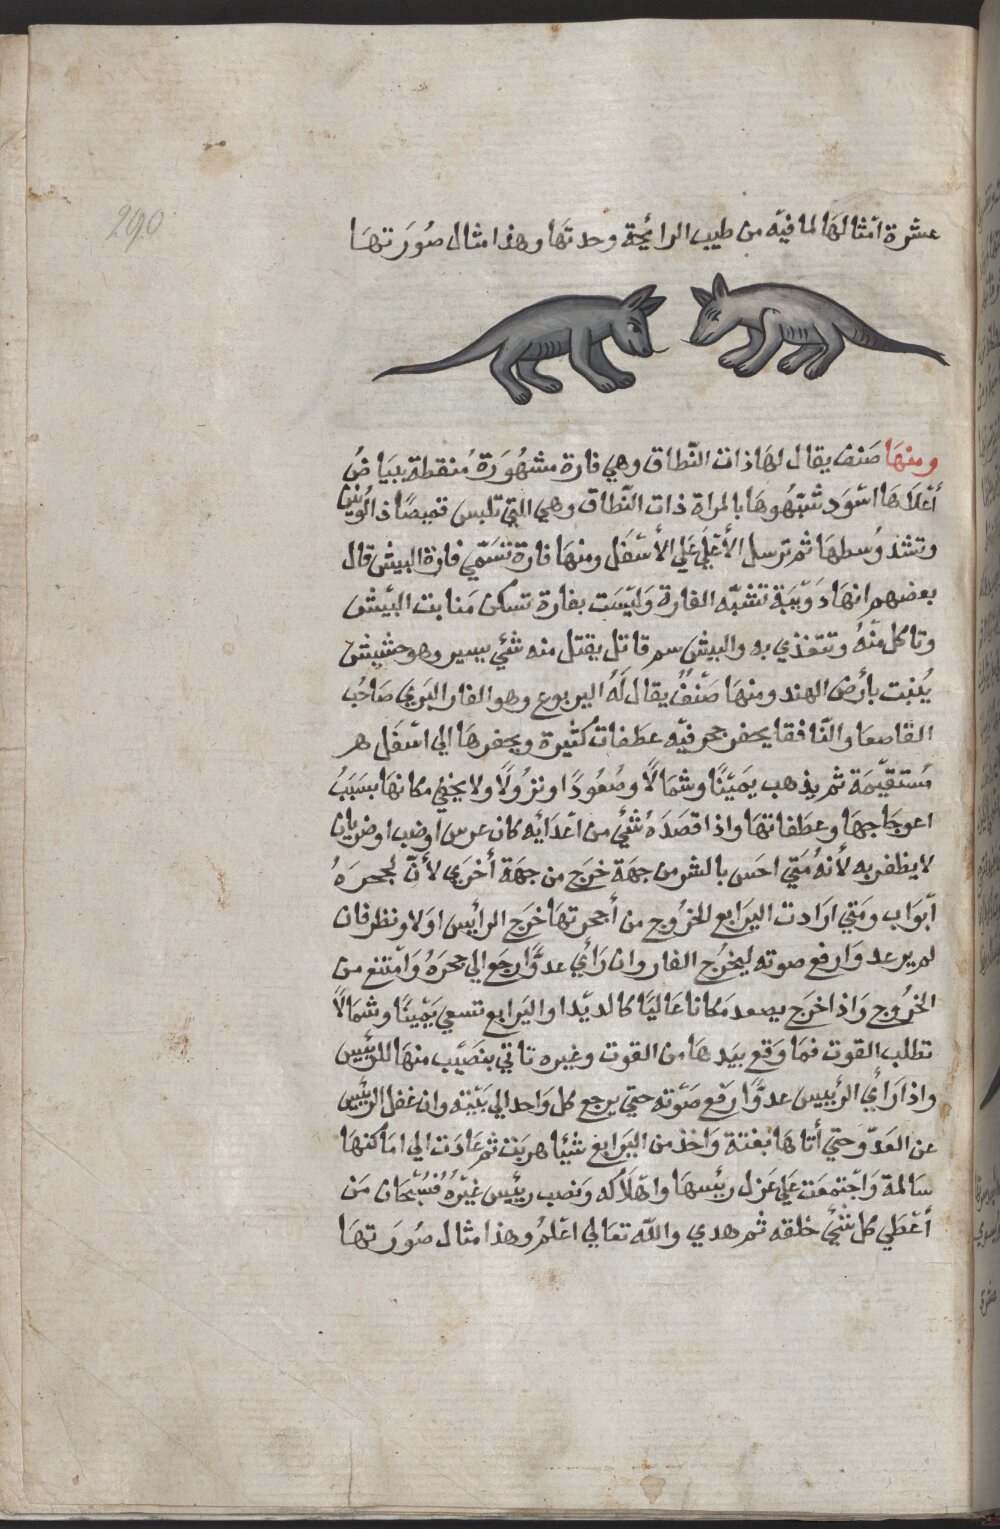 290
عشرة امثالها لما فيه من طيب الرائحة وحدتها وهذا مثال صورتها
ومنها صنف يقال لها ذات النطاق وهي فارة مشهورة منقطة ببياض
أعلاها اسود شبهوها بالمراة ذات النطاق وهي التي تلبس قميصا ذا لونين
وتشد وسطها ثم ترسل الأعلي علي الأسفل ومنها فارة تسمي فارة البيش قال
بعضهم انها دويبة تشبه الفارة وليست بفارة تسكن منابت البيش
وتاكل منه وتتغذي به والبيش سم قاتل يقتل منه شئ يسير وهو حشيش
ينبت بأرض الهند ومنها صنف يقال له اليربوع وهو الفار البري صاحب
القاصعا والنافقا يحفر جحر فيه عطفات كثيرة ويحفرها الي اسفل هر
مستقيمة ثم يذهب يمينا وشمالا وصعودا ونزولا ولا يخفي مكانها بسبب
اعوجاجها وعطفاتها واذا قصده شئ من أعدايه كان عرس اوضب اوضربان
لا يظفر به لأنه متي احس بالشر من جهة خرج من جهة أخري لأن لجحره
أبواب ومتي ارادت اليرابع الخروج من أجحرتها خرج الرأيس اولا ونظر فان
لم ير عدوا رفع صوته ليخرج الفار وان رأي عدوا رجع الي جحره وامتنع من
الخروج واذا خرج يصعد مكانا عاليا كالديدا واليرابع تسعي يمينا وشمالا
تطلب القوت فما وقع بيدها من القوت وغيره تاتي بنصيب منها للرئيس
واذا رأي الرئيس عدوا رفع صوته حتي يرجع كل واحد الي بيته وان غفل الرئيس
عن العدو حتي أتاها بغتة واخذ من اليرابع شيئا هربت ثم عادت الي اماكنها
سالمة واجتمعت علي عزل رييسها واهلاكه ونصب رييس غيره فسبحان من
أعطي كل شئ خلقه ثم هدي والله تعالي اعلم وهذا مثال صورتها